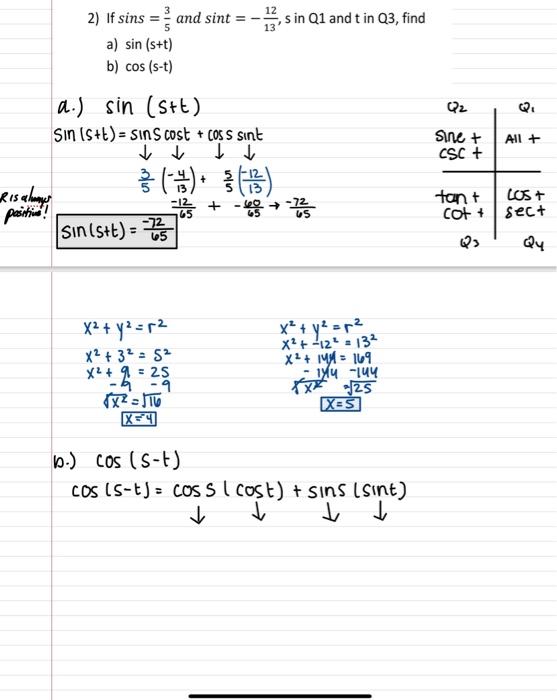 2) If sins = 3/5 and sint = −12/13, s in Q1 and t in Q3, find
a) sin (s+t)
b) cos (s-t)
a.) sin (s+t)
Sin (s+t) = sins cost + cos s sint
↓ ↓ ↓ ↓
3/5 (-4/13) + 5/5 (-12/13)
-12/65 + -60/65 → -72/65
R is always
positive!
Sin(s+t) = -72/65
Q2 Q1
sine + All +
csc +
tan + cos +
cot + sect
Q3 Q4
x² + y² = r²
x² + 3² = 5²
x² + 9 = 25
-9 -9
√x² = √16
x = -4
x² + y² = r²
x² + -12² = 13²
x² + 144 = 169
- 144 -144
√x² √25
x = 5
b.) cos (s-t)
cos (s-t) = cos s (cost) + sins (sint)
↓ ↓ ↓ ↓